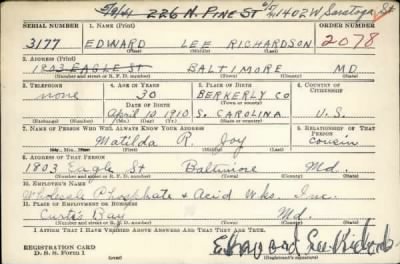 5/6/41 226 N. PINE ST 1402 W. Saratoga St
SERIAL NUMBER 1. NAME (Print) ORDER NUMBER
3177 EDWARD LEE RICHARDSON 2078
(First) (Middle) (Last)
2. ADDRESS (Print)
1803 EAGLE ST BALTIMORE MD.
(Number and street or R. F. D. number) (Town) (County) (State)
3. TELEPHONE 4. AGE IN YEARS 5. PLACE OF BIRTH 6. COUNTRY OF CITIZENSHIP
none 30 BERKERLY CO
DATE OF BIRTH (Town or county)
April 10 1910 S. CAROLINA U. S.
(Exchange) (No.) (Mo.) (Day) (Yr.) (State or country)
7. NAME OF PERSON WHO WILL ALWAYS KNOW YOUR ADDRESS 8. RELATIONSHIP OF THAT PERSON
Matilda R. Joy cousin
(Mr., Mrs., Miss) (First) (Middle) (Last)
9. ADDRESS OF THAT PERSON
1803 Eagle St Baltimore Md.
(Number and street or R. F. D. number) (Town) (County) (State)
10. EMPLOYER'S NAME
Wholesale Phosphate + Acid Wks. Inc.
11. PLACE OF EMPLOYMENT OR BUSINESS
Curtis Bay Md.
(Number and street or R. F. D. number) (Town) (County) (State)
I AFFIRM THAT I HAVE VERIFIED ABOVE ANSWERS AND THAT THEY ARE TRUE.
REGISTRATION CARD
D. S. S. Form 1 Edward Lee Richards